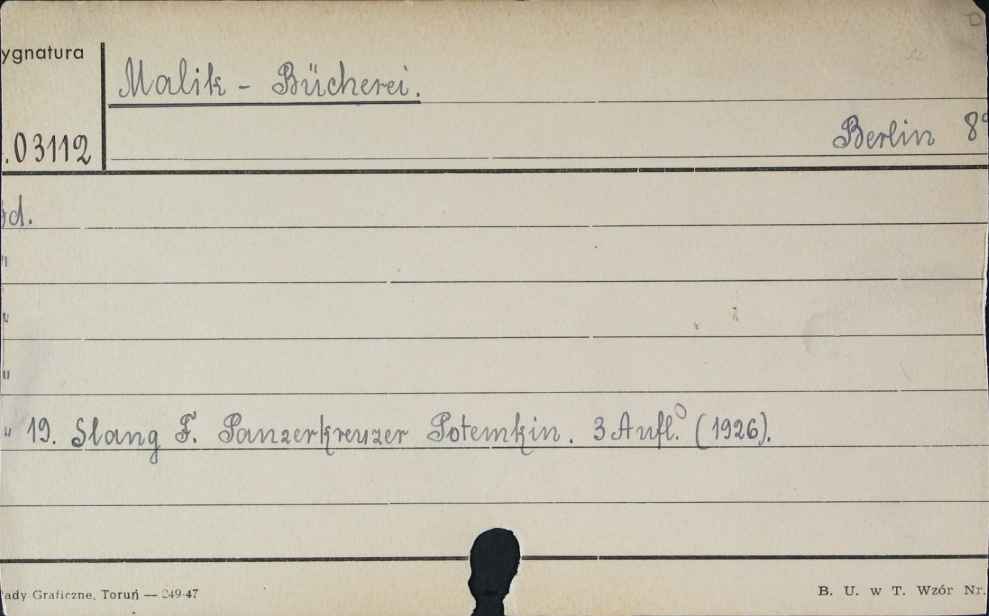 ygnatura
Malik - Bücherei.
.03112
Berlin 8°
Bd.
"
"
"
" 19. Slang F. Panzerkreuzer Potemkin. 3 Aufl. (1926).
ady Graficzne, Toruń — 249-47
B. U. w T. Wzór Nr.